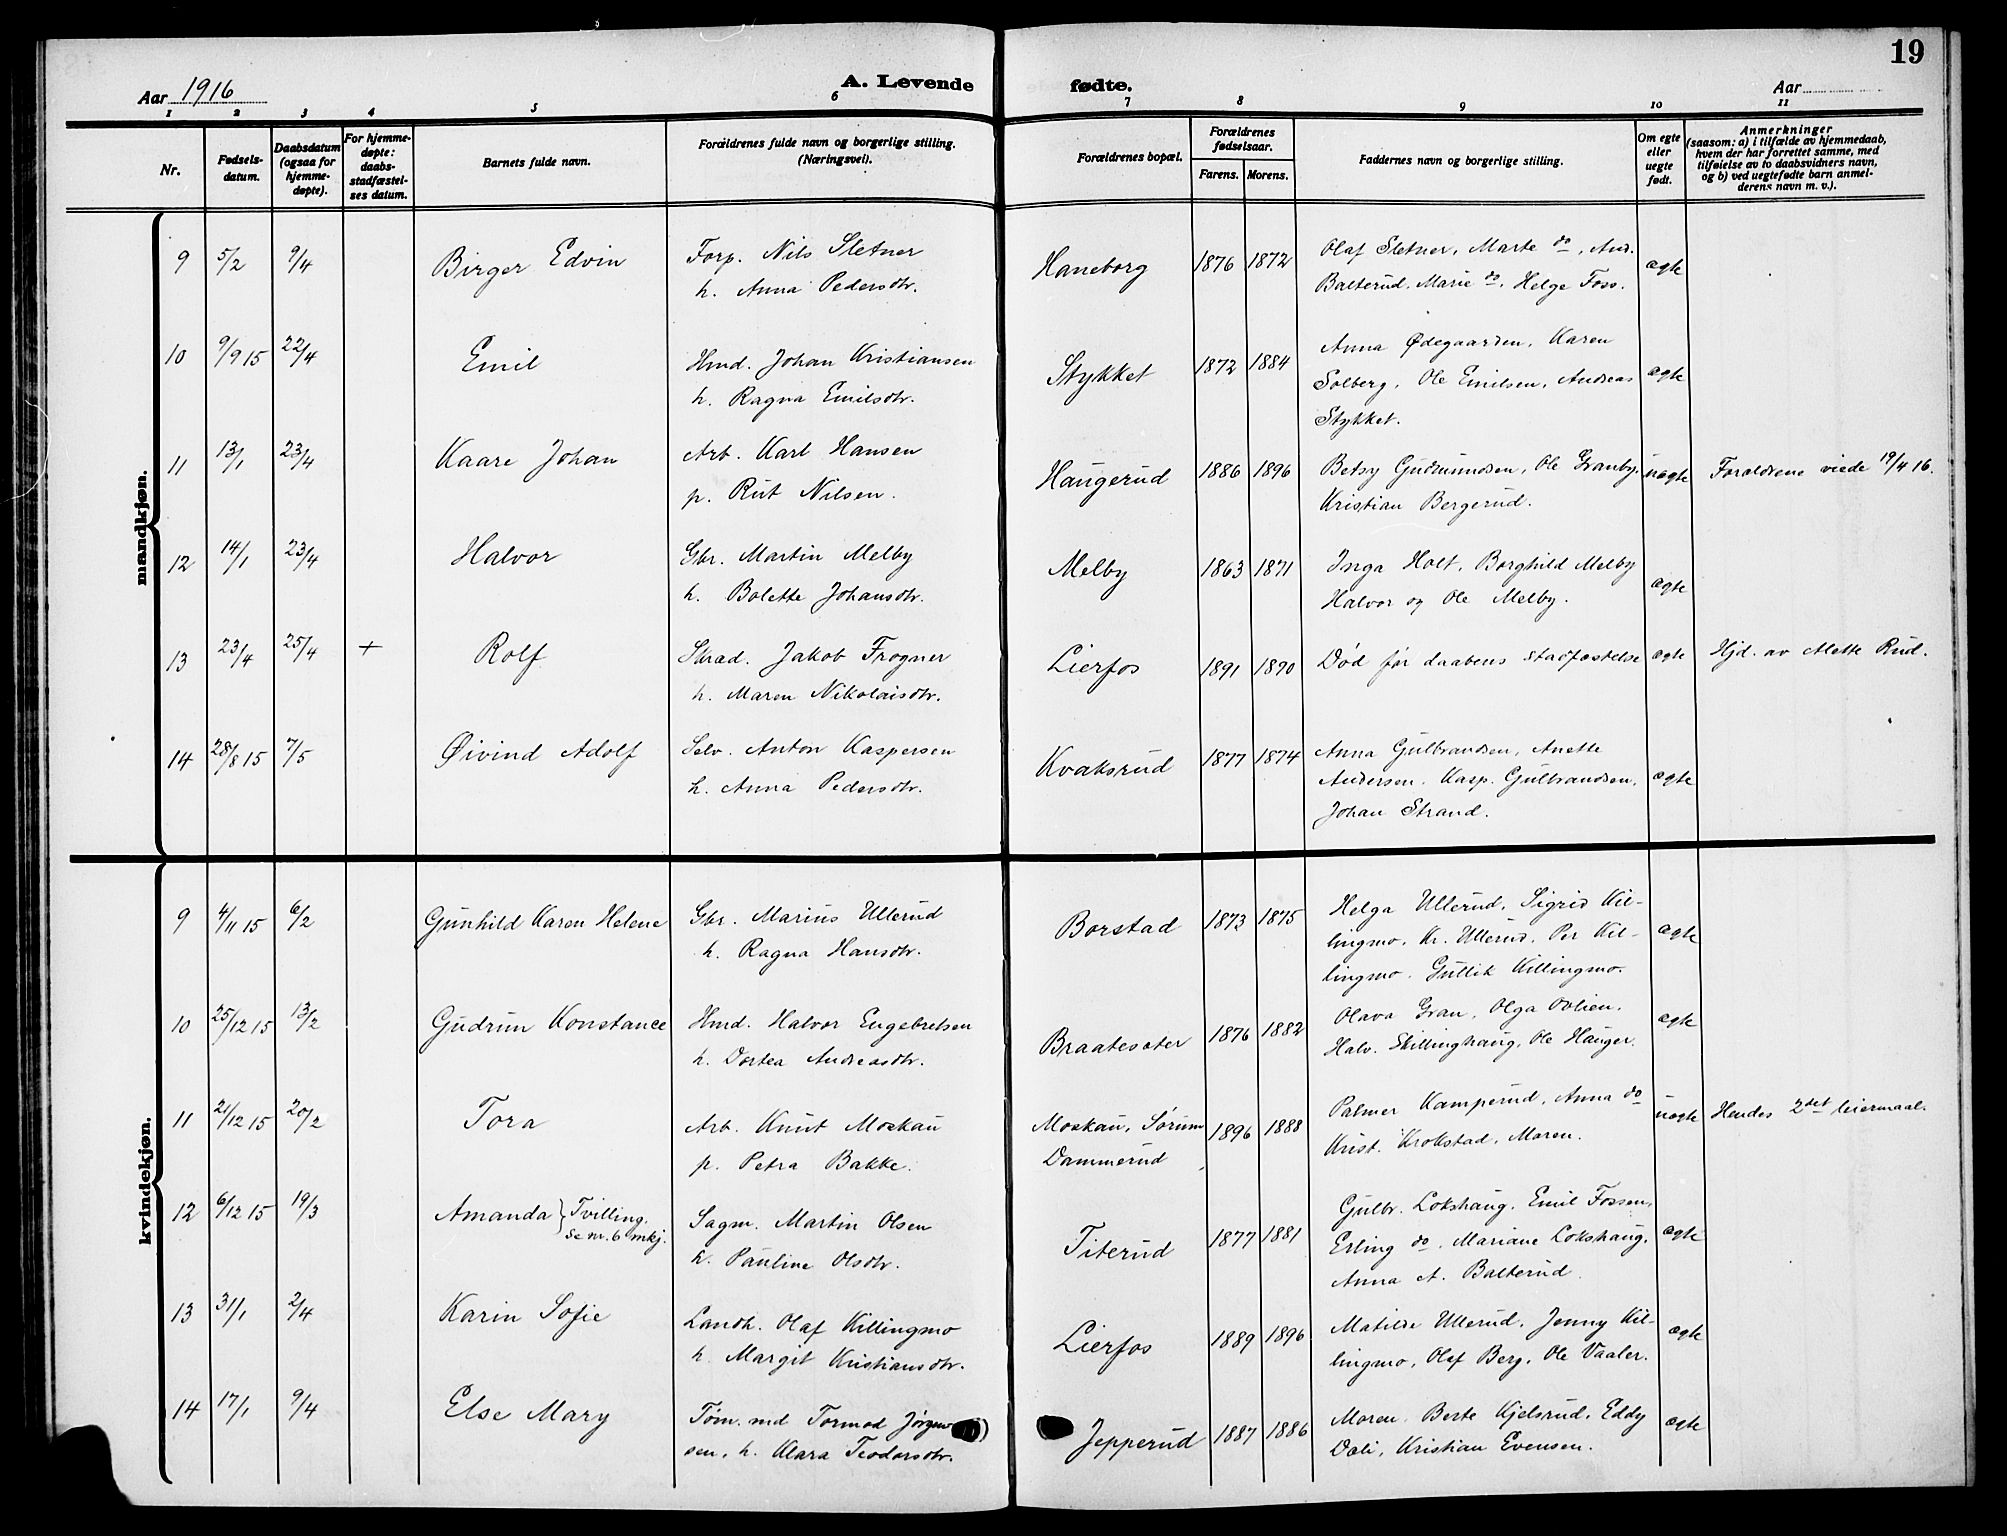 19
Aar 1916 A. Levende fødte. Aar
1 2 3 4 5 6 7 8 9 10 11
Nr. Fødsels-datum. Daabsdatum (ogsaa for hjemme-døpte). For hjemme-døpte: daabs-stadfæstel-ses datum. Barnets fulde navn. Forældrenes fulde navn og borgerlige stilling. (Næringsvei). Forældrenes bopæl. Forældrenes fødselsaar. Farens. Morens. Faddernes navn og borgerlige stilling. Om egte eller uegte født. Anmerkninger (saasom: a) i tilfælde av hjemmedaab, hvem der har forrettet samme, med tilføielse av to daabsvidners navn, og b) ved uegtefødte barn anmel-derens navn m. v.).
mandkjøn.
9 5/2 9/4 Birger Edvin Forp. Nils Sletner Haneborg 1876 1872 Olaf Sletner, Marte do, And. ægte
h. Anna Pedersdtr. Balterud. Marie do. Helge Foss.
10 9/9 15 22/4 Emil Hmd. Johan Kristiansen Stykket 1872 1884 Anna Ødegaarden, Karen ægte
h. Ragna Emilsdtr. Solberg, Ole Emilsen, Andreas
Stykket.
11 13/1 23/4 Kaare Johan Arb. Karl Hansen Haugerud 1886 1896 Betsy Gudmundsen, Ole Granby. uægte Forældrene viede 19/4 16.
p. Rut Nilsen. Kristian Bergerud.
12 14/1 23/4 Halvor Gbr. Martin Melby Melby 1863 1871 Inga Holt, Borghild Melby ægte
h. Bolette Johansdtr. Halvor og Ole Melby.
13 23/4 25/4 + Rolf Skræd. Jakob Frogner Lierfos 1891 1890 Død før daabens stadfæstelse ægte Hjd. av Mette Rud.
h. Maren Nikolaisdtr.
14 28/8 15 7/5 Øivind Adolf Selv. Anton Kaspersen Kvaksrud 1877 1874 Anna Gulbrandsen, Anette ægte
h. Anna Pedersdtr. Andersen. Kasp. Gulbrandsen.
Johan Strand.
kvindekjøn.
9 4/11 15 6/2 Gunhild Karen Helene Gbr. Marius Ullerud Borstad 1873 1875 Helga Ullerud, Sigrid Kil- ægte
h. Ragna Hansdtr. lingmo, Kr. Ullerud, Per Kil-
lingmo. Gullik Killingmo.
10 25/12 15 13/2 Gudrun Konstance Hmd. Halvor Engebretsen Braatesæter 1876 1882 Olava Gran, Olga Ovlien. ægte
h. Dortea Andreasdtr. Halv. Skillinghaug, Ole Hauger.
11 21/12 15 20/2 Tora Arb. Knut Moskau Moskau, Sørum 1896 1888 Palmer Kamperud, Anna do uægte Hendes 2det leiermaal.
p. Petra Bakke. Dammerud Krist. Krokstad, Moren.
12 6/12 15 19/3 Amanda } Tvilling. Se nr. 6 mkj. Sagm. Martin Olsen Titerud 1877 1881 Gulbr. Lokshaug, Emil Fossen, ægte
h. Pauline Olsdtr. Erling do. Mariane Lokshaug,
Anna A. Balterud
13 31/1 2/4 Karin Sofie Landh. Olaf Killingmo Lierfos 1889 1896 Matilde Ullerud, Jenny Kil- ægte
h. Margit Kristiansdtr. lingmo, Olaf Berg, Ole Vaaler.
14 17/1 9/4 Else Mary Tøm.md Tormod Jørgen- Jepperud 1887 1886 Moren. Berte Kjelsrud, Eddy ægte
sen, h. Klara Teodorsdtr. Dæli, Kristian Evensen.